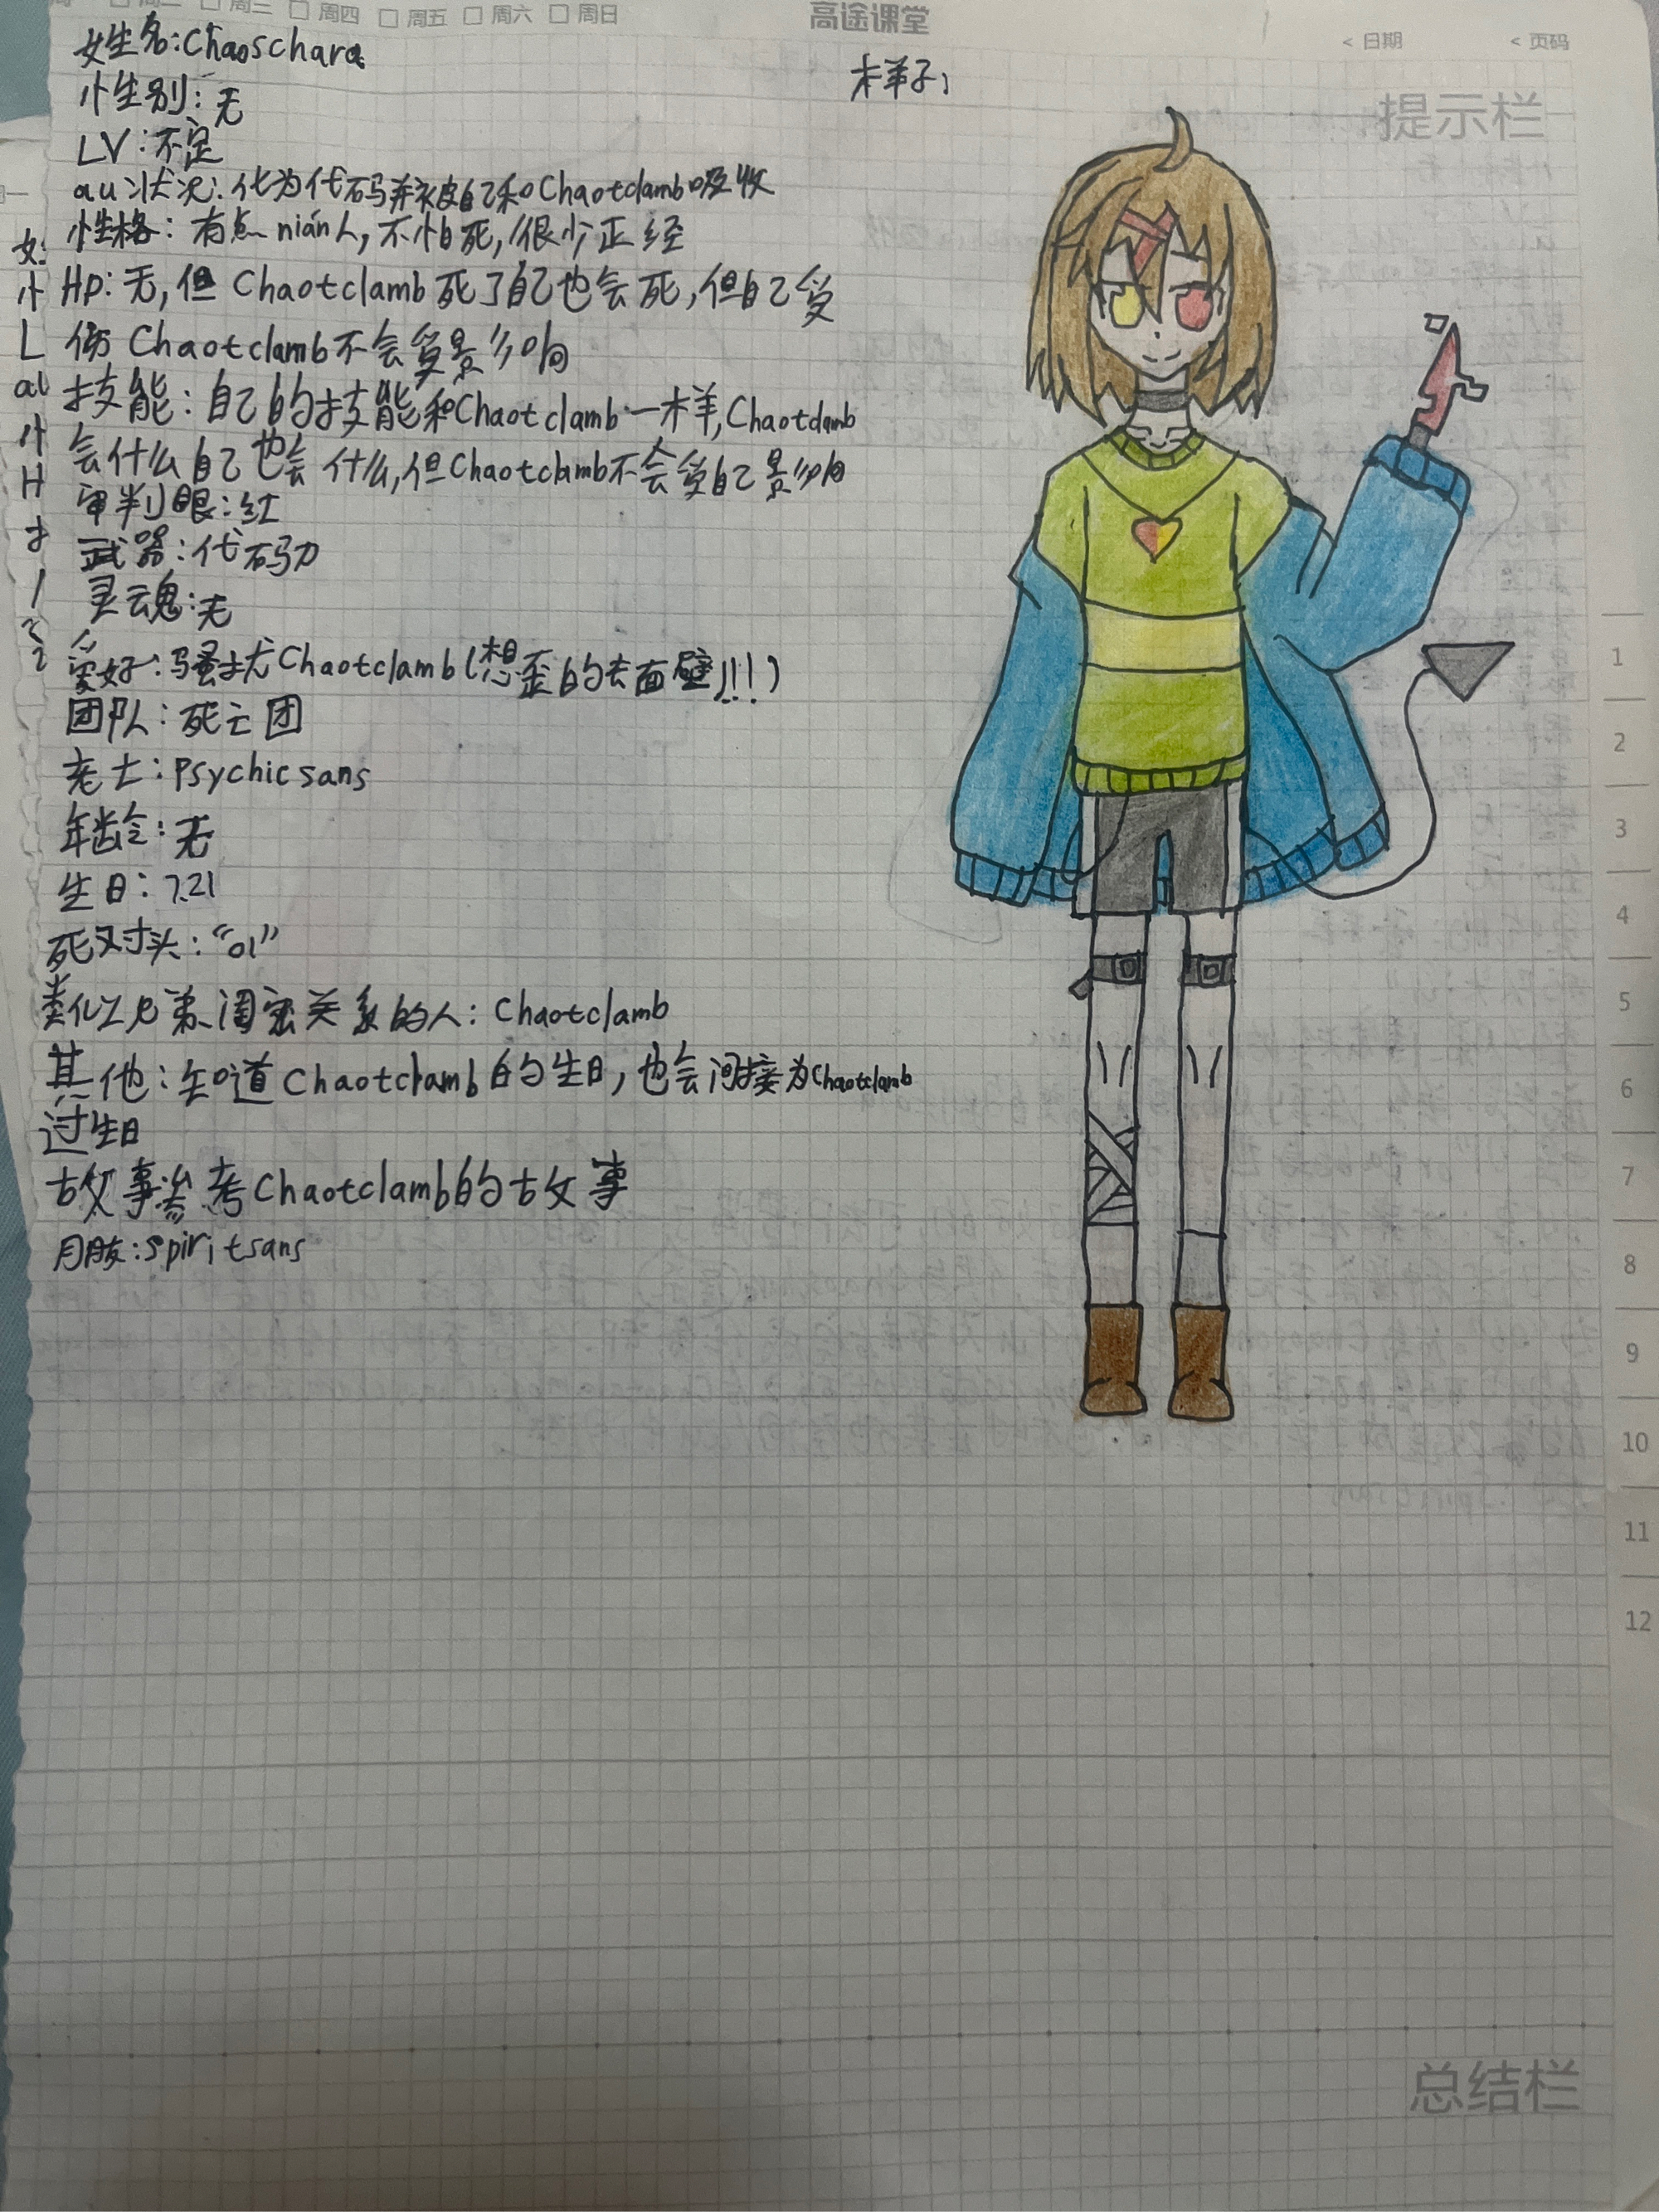 周三 周四 周五 周六 周日
高途课堂
< 日期 < 页码
提示栏
姓名:Chaoschara
样子:
性别:无
LV:不定
au状况:化为代码并被自己和Chaotclamb吸收
性格:有点nián人,不怕死,很少正经
Hp:无,但Chaotclamb死了自己也会死,但自己受
伤Chaotclamb不会受影响
技能:自己的技能和Chaotclamb一样,Chaotclamb
会什么自己也会什么,但Chaotclamb不会受自己影响
审判眼:红
武器:代码刀
灵魂:无
爱好:骚扰Chaotclamb(想歪的去面壁!!!)
团队:死亡团
老士:Psychicsans
年龄:无
生日:7.21
死对头:“01”
类似兄弟、闺密关系的人:Chaotclamb
其他:知道Chaotclamb的生日,也会间接为Chaotclamb
过生日
故事参考Chaotclamb的故事
朋友:Spiritsans
1
2
3
4
5
6
7
8
9
10
11
12
总结栏